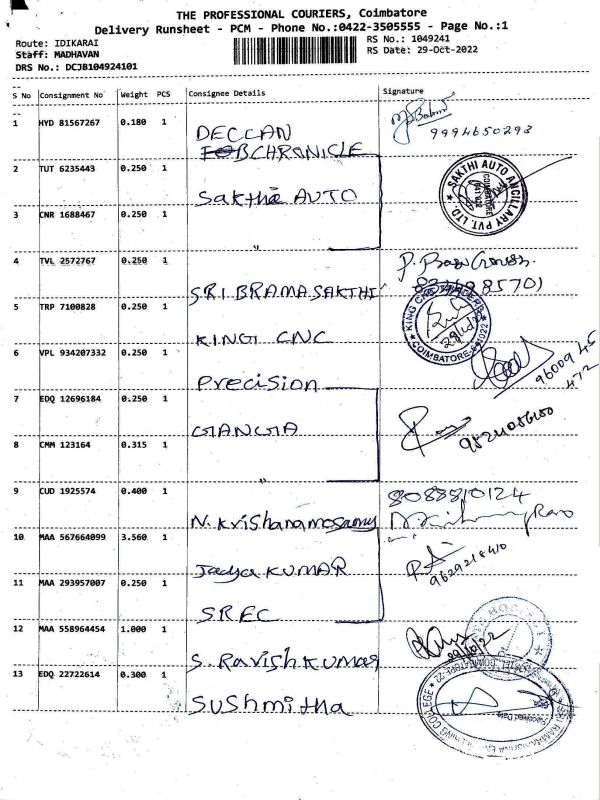 THE PROFESSIONAL COURIERS, Coimbatore
Delivery Runsheet - PCM - Phone No.:0422-3505555 - Page No.:1
Route: IDIKARAI RS No.: 1049241
Staff: MADHAVAN RS Date: 29-Oct-2022
DRS No.: DCJB104924101
S No Consignment No Weight PCS Consignee Details Signature
1 HYD 81567267 0.180 1 DECCAN
CHRONICLE
2 TUT 6235443 0.250 1 Sakthi AUTO
SAKTHI AUTO ANCILLARY PVT. LTD.
3 CNR 1688467 0.250 1 "
4 TVL 2572767 0.250 1 SRI BRAMASAKTHI
5 TRP 7100828 0.250 1 KING CNC
COIMBATORE
6 VPL 934207332 0.250 1 Precision
9600945
472
7 EDQ 12696184 0.250 1 GANGA
8 CMM 123164 0.315 1 "
9 CUD 1925574 0.400 1 N. Krishanamosamy
8088810124
10 MAA 567664099 3.560 1 KUMAR
9629218410
11 MAA 293957007 0.250 1 SREC
12 MAA 558964454 1.000 1 S. Ravishkumar
29/10/22
13 EDQ 22722614 0.300 1 Sushmitha